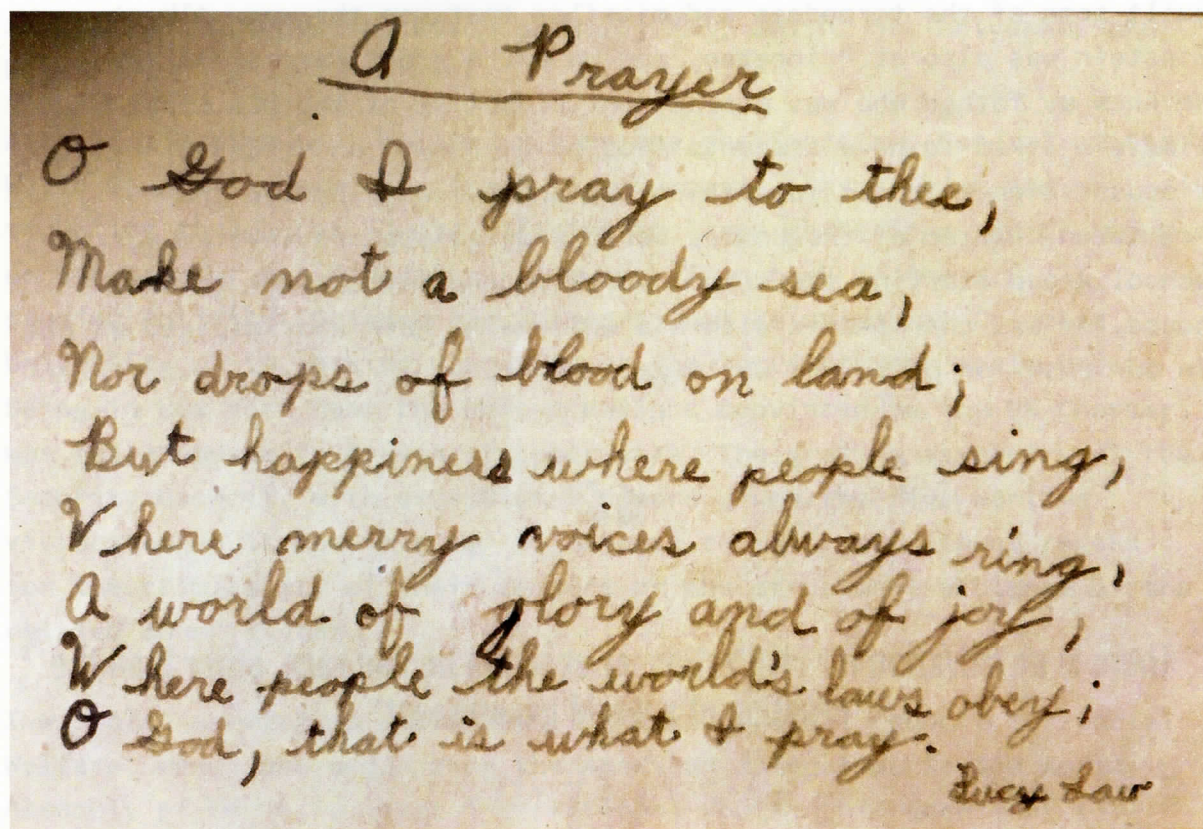 A Prayer
O God I pray to thee,
Make not a bloody sea,
Nor drops of blood on land;
But happiness where people sing,
Where merry voices always ring,
A world of glory and of joy,
Where people the world's laws obey;
O God, that is what I pray.
Lucy Law